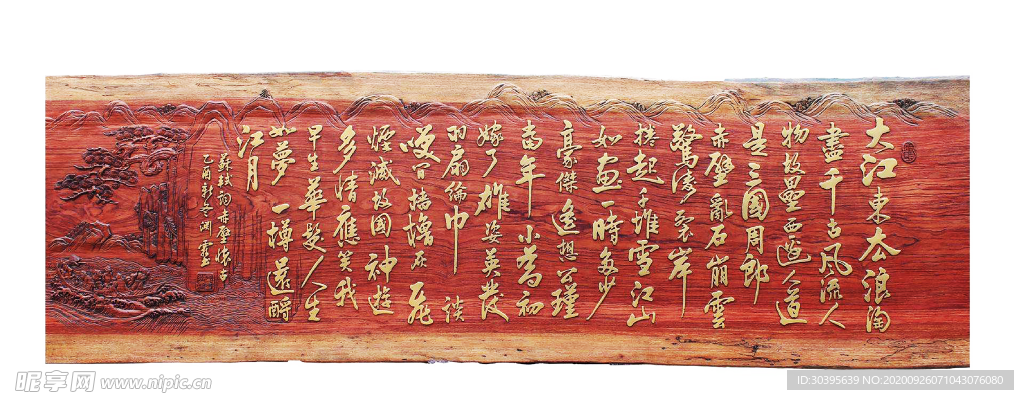 大江東去浪淘
盡千古風流人
物故壘西邊人道
是三國周郎
赤壁亂石崩雲
驚濤裂岸
捲起千堆雪江山
如畫一時多少
豪傑遙想公瑾
當年小喬初
嫁了雄姿英發
羽扇綸巾談
間檣灰飛
煙滅故國神遊
多情應笑我
早生華髮人生
如夢一樽還酹
江月
蘇軾詞赤壁懷古
乙酉
昵享网 www.nipic.cn
ID:30395639 NO:20200926071043076080